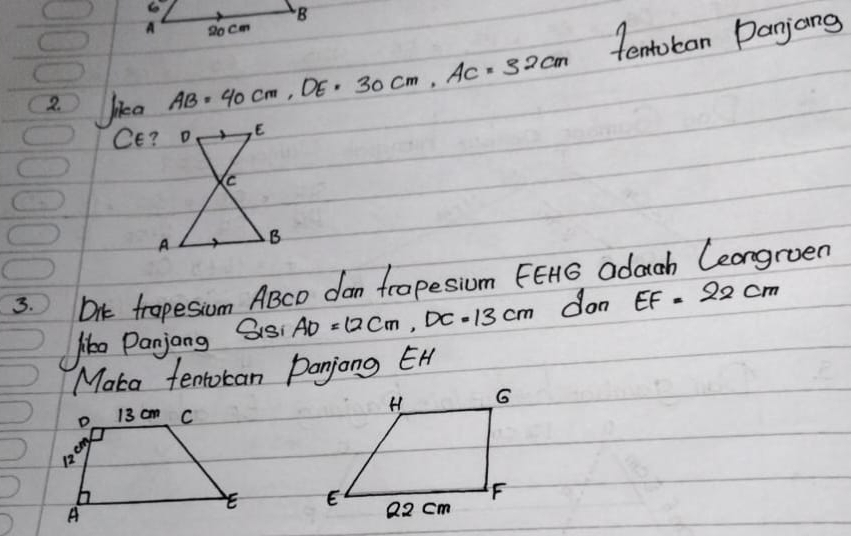 6
A 20 cm B
2. Jika AB = 40 cm, DE = 30 cm, AC = 32 cm tentukan Panjang
CE?
D E
C
A B
3. Dik trapesium ABCD dan trapesium FEHG adalah Congruen
Jika Panjang Sisi AD = 12 Cm, DC = 13 cm dan EF = 22 cm
Maka tentukan Panjang EH
D 13 cm C
12 cm
A E
H G
E F
22 cm